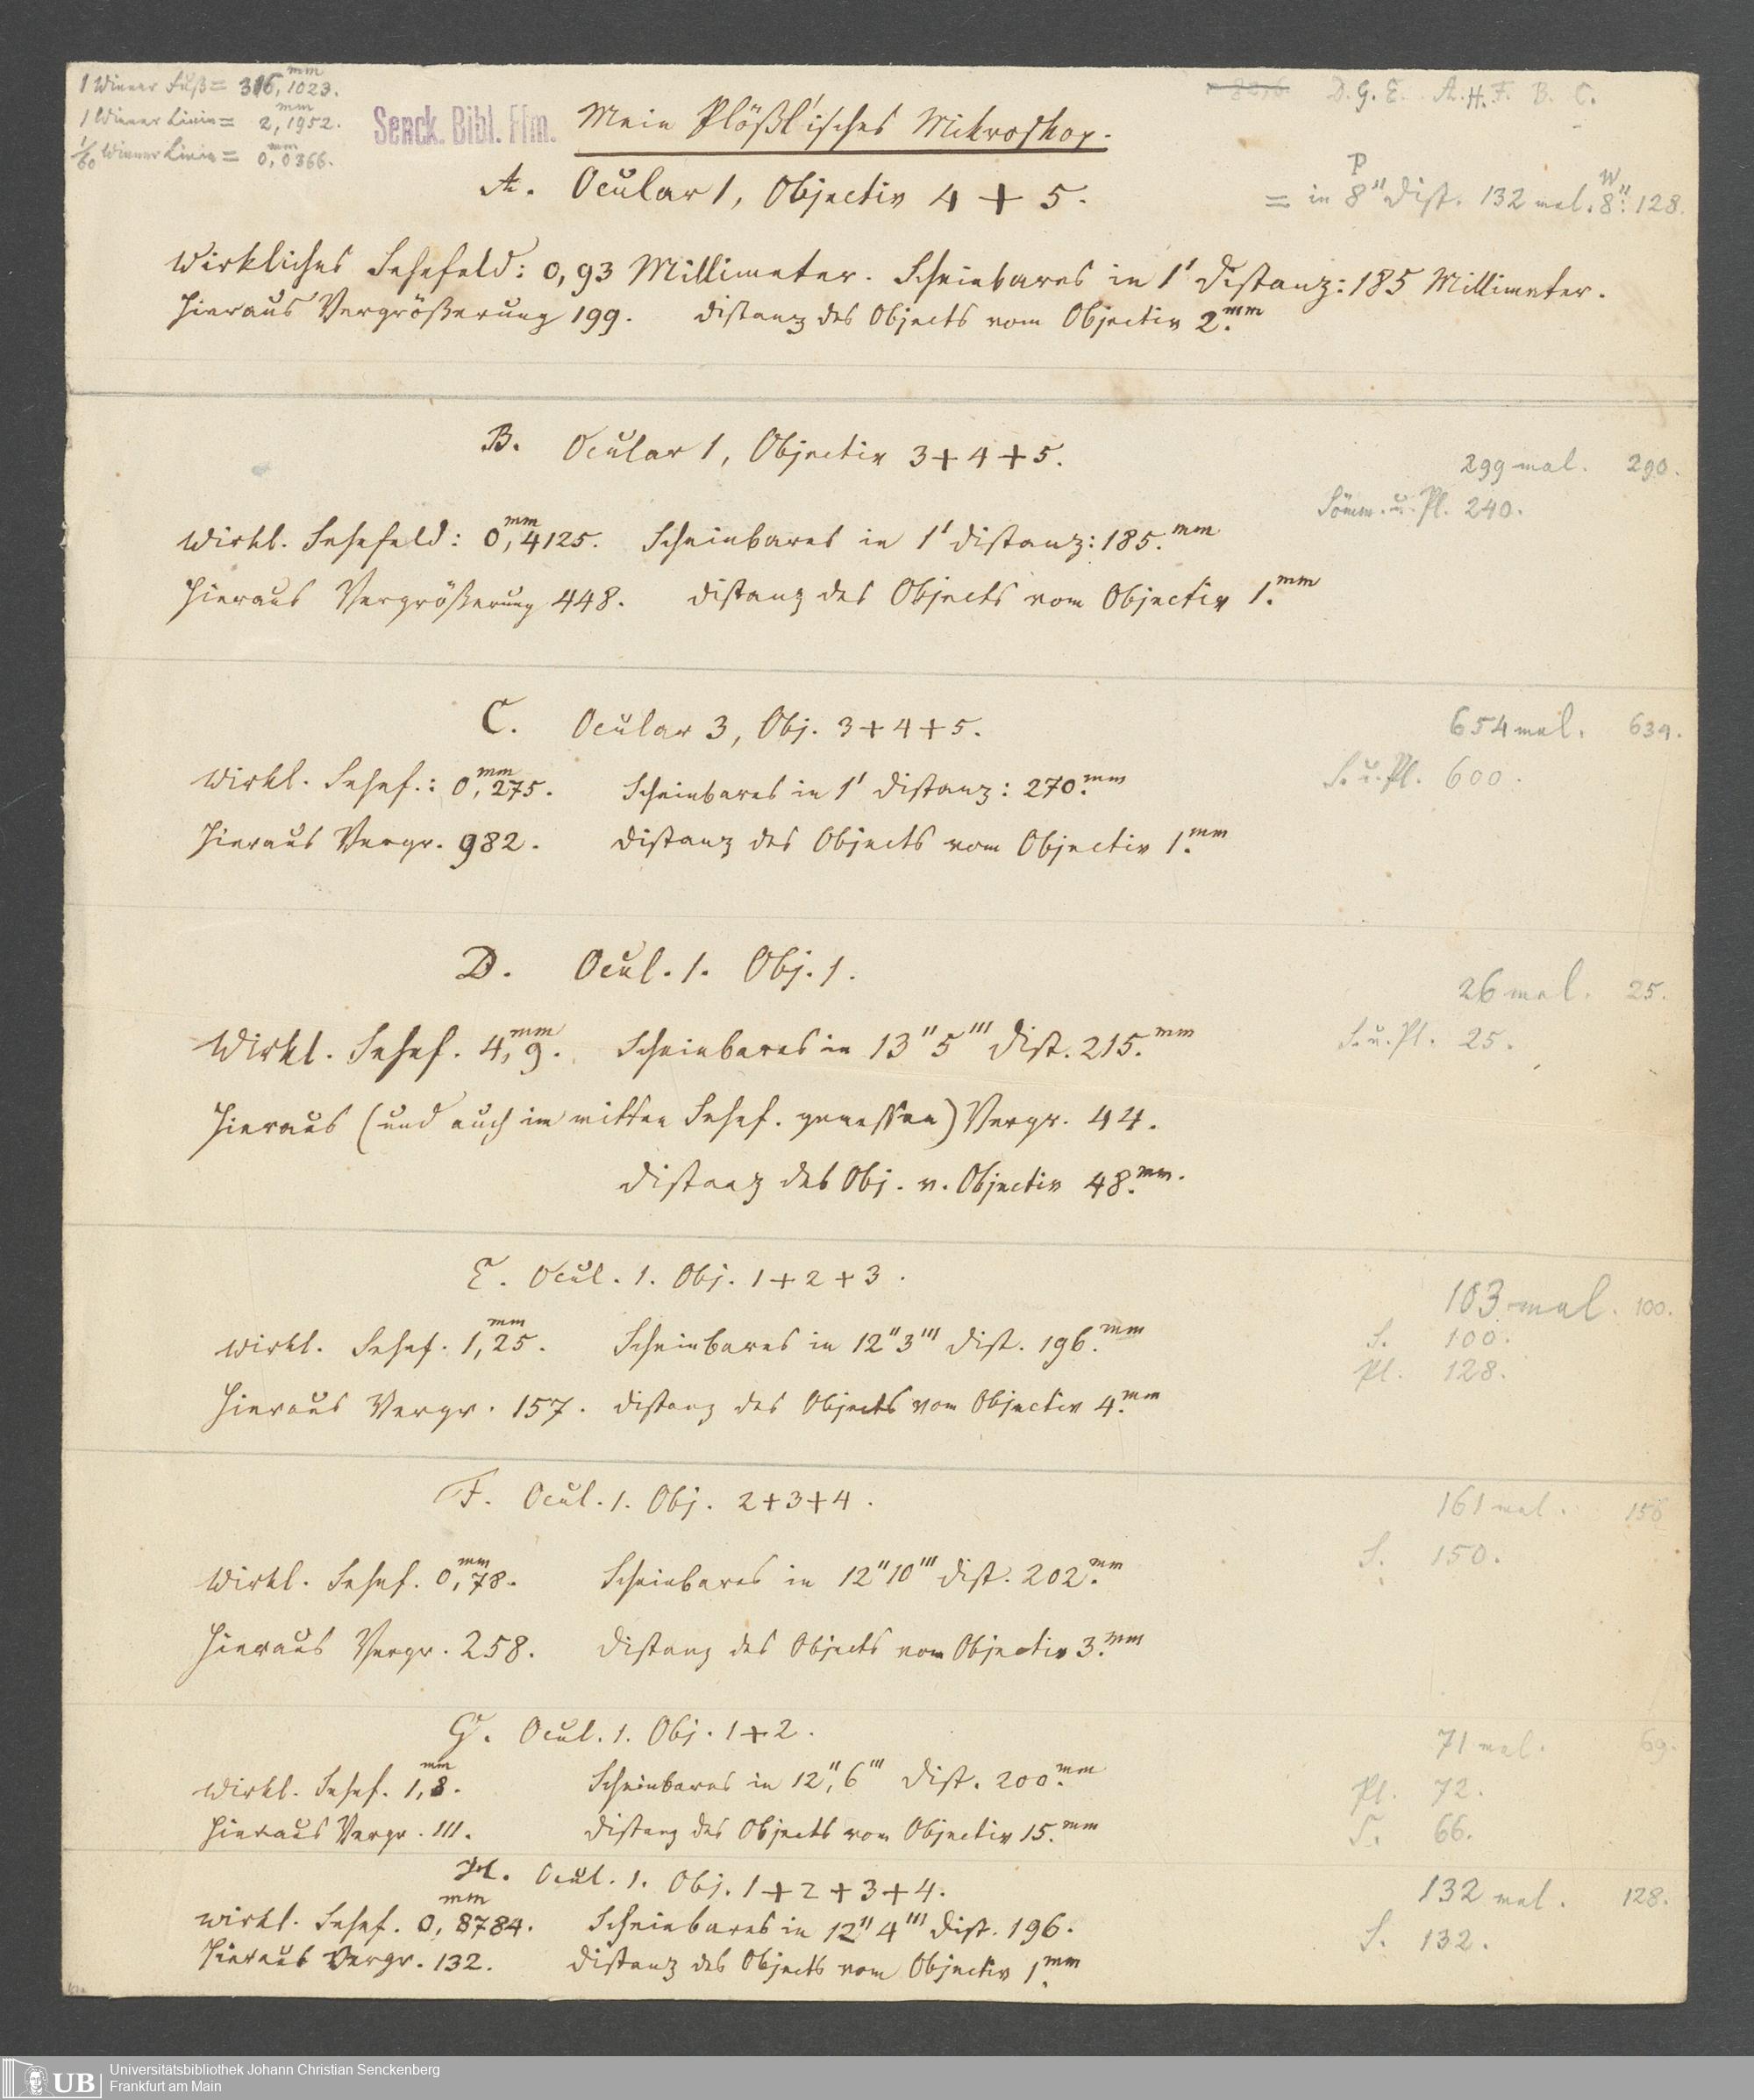 1 Wiener Fuß = 316,1023. mm
1 Wiener Linie = 2,1952. mm
1/60 Wiener Linie = 0,0366. mm
Senck. Bibl. Ffm.
D. G. E. A. H. F. B. C.
Mein Plößl'isches Mikroskop.
A. Ocular 1, Objectiv 4 + 5.
= in P 8" Dist. 132 mal. W 8": 128.
Wirkliches Sehefeld: 0,93 Millimeter. Scheinbares in 1' Distanz: 185 Millimeter.
Hieraus Vergrößerung 199. Distanz des Objects vom Objectiv 2. mm
B. Ocular 1, Objectiv 3 + 4 + 5.
299 mal. 290.
Sömm. u. Pl. 240.
Wirkl. Sehefeld: 0,4125. mm Scheinbares in 1' Distanz: 185. mm
Hieraus Vergrößerung 448. Distanz des Objects vom Objectiv 1. mm
C. Ocular 3, Obj. 3 + 4 + 5.
654 mal. 639.
S. u. Pl. 600.
Wirkl. Sehef.: 0,275. mm Scheinbares in 1' Distanz: 270. mm
Hieraus Vergr. 982. Distanz des Objects vom Objectiv 1. mm
D. Ocul. 1. Obj. 1.
26 mal. 25.
S. u. Pl. 25.
Wirkl. Sehef. 4,9. mm Scheinbares in 13" 5''' Dist. 215. mm
Hieraus (und auch im mittlen Sehef. gemessen) Vergr. 44.
Distanz des Obj. v. Objectiv 48. mm.
E. Ocul. 1. Obj. 1 + 2 + 3.
103 mal. 100.
S. 100.
Pl. 128.
Wirkl. Sehef. 1,25. mm Scheinbares in 12" 3''' Dist. 196. mm
Hieraus Vergr. 157. Distanz des Objects vom Objectiv 4. mm
F. Ocul. 1. Obj. 2 + 3 + 4.
161 mal. 156
S. 150.
Wirkl. Sehef. 0,78. mm Scheinbares in 12" 10''' Dist. 202. mm
Hieraus Vergr. 258. Distanz des Objects vom Objectiv 3. mm
G. Ocul. 1. Obj. 1 + 2.
71 mal. 69.
Pl. 72.
S. 66.
Wirkl. Sehef. 1,8. mm Scheinbares in 12", 6''' Dist. 200. mm
Hieraus Vergr. 111. Distanz des Objects vom Objectiv 15. mm
H. Ocul. 1. Obj. 1 + 2 + 3 + 4.
132 mal. 128.
S. 132.
Wirkl. Sehef. 0,8784. mm Scheinbares in 12" 4''' Dist. 196.
Hieraus Vergr. 132. Distanz des Objects vom Objectiv 1. mm
UB Universitätsbibliothek Johann Christian Senckenberg
Frankfurt am Main